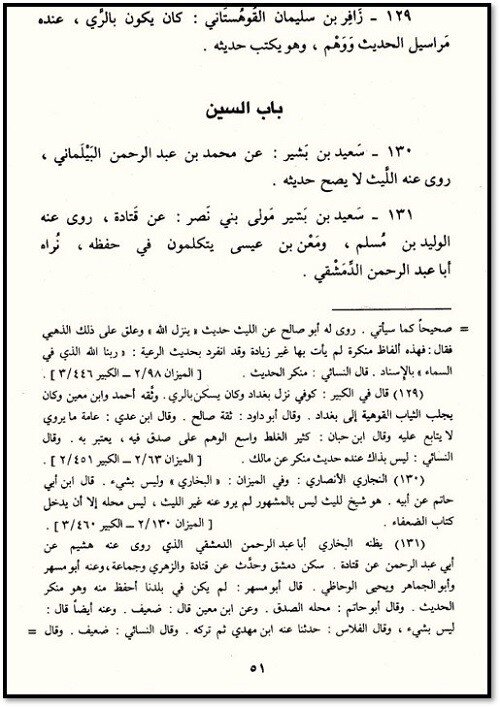 ١٢٩ ـ زَافِر بن سليمان القُوهُستَاني : كان يكون بالرَّي ، عنده
مَراسيل الحديث وَوَهْم ، وهو يكتب حديثه .
باب السين
١٣٠ ـ سَعيد بن بَشير : عن محمد بن عبد الرحمن البَيْلَماني ،
روى عنه اللَّيث لا يصح حديثه .
١٣١ ـ سَعيد بن بَشير مَولى بني نَصر : عن قَتادة ، روى عنه
الوليد بن مُسلم ، ومَعْن بن عيسى يتكلمون في حفظه ، نُراه
أبا عبد الرحمن الدِّمَشْقي .
= صحيحاً كما سيأتي . روى له أبو صالح عن الليث حديث « ينزل الله » وعلق على ذلك الذهبي
فقال : فهذه ألفاظ منكرة لم يأت بها غير زيادة وقد انفرد بحديث الرعية : « ربنا الله الذي في
السماء » بالإسناد . قال النسائي : منكر الحديث . [ الميزان ٢/٩٨ ــ الكبير ٣/٤٤٦ ] .
(١٢٩) قال في الكبير : كوفي نزل بغداد وكان يسكن بالري . وثَّقه أحمد وابن معين وكان
يجلب الثياب القوهية إلى بغداد . وقال أبو داود : ثقة صالح . وقال ابن عدي : عامة ما يروي
لا يتابع عليه وقال ابن حبان : كثير الغلط واسع الوهم على صدق فيه ، يعتبر به . وقال
النسائي : ليس بذاك عنده حديث منكر عن مالك . [ الميزان ٢/٦٣ ــ الكبير ٢/٤٥١ ]
(١٣٠) النجاري الأنصاري : وفي الميزان : « البخاري » وليس بشيء . قال ابن أبي
حاتم عن أبيه . هو شيخ لليث ليس بالمشهور لم يرو عنه غير الليث ، ليس محله إلا أن يدخل
كتاب الضعفاء . [ الميزان ٢/١٣٠ ــ الكبير ٣/٤٦٠ ] .
(١٣١) يظنه البخاري أبا عبد الرحمن الدمشقي الذي روى عنه هشيم عن
أبي عبد الرحمن عن قتادة . سكن دمشق وحدَّث عن قتادة والزهري وجماعة ، وعنه أبو مسهر
وأبو الجماهر ويحيى الوحاظي . قال أبو مسهر : لم يكن في بلدنا أحفظ منه وهو منكر
الحديث . وقال أبو حاتم : محله الصدق . وعن ابن معين قال : ضعيف . وعنه أيضاً قال :
ليس بشيء ، وقال الفلاس : حدثنا عنه ابن مهدي ثم تركه . وقال النسائي : ضعيف . وقال =
٥١